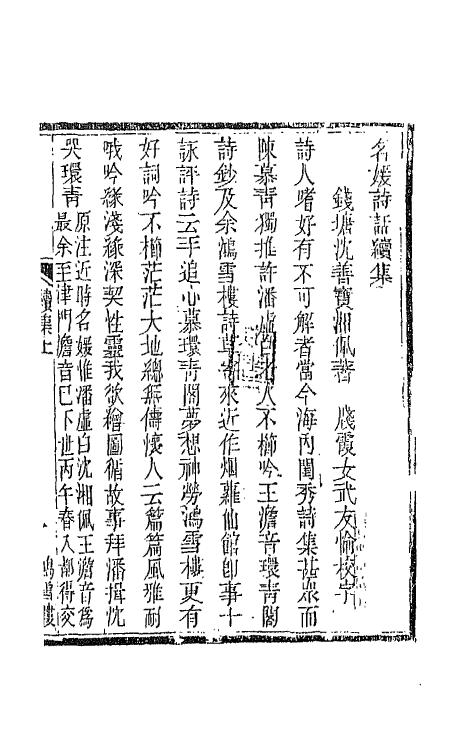 名媛詩話續集
錢塘沈善寶湘佩著　牋霞女武友愉校字
詩人嗜好有不可解者當今海內閨秀詩集甚眾而
陳慕青獨推許潘虛白老人不櫛吟王澹音環青閣
詩鈔及余鴻雪樓詩草寄來近作烟蘿仙館即事十
詠評詩云手追心慕環青閣夢想神勞鴻雪樓更有
好詞吟不櫛茫茫大地總無儔懷人云篇篇風雅耐
哦吟緣淺緣深契性靈我欲繪圖循故事拜潘揖沈
哭環青
原注近時名媛惟潘虛白沈湘佩王澹音為
最余至津門澹音已下世丙午春入都得交
續集上
鴻雪樓